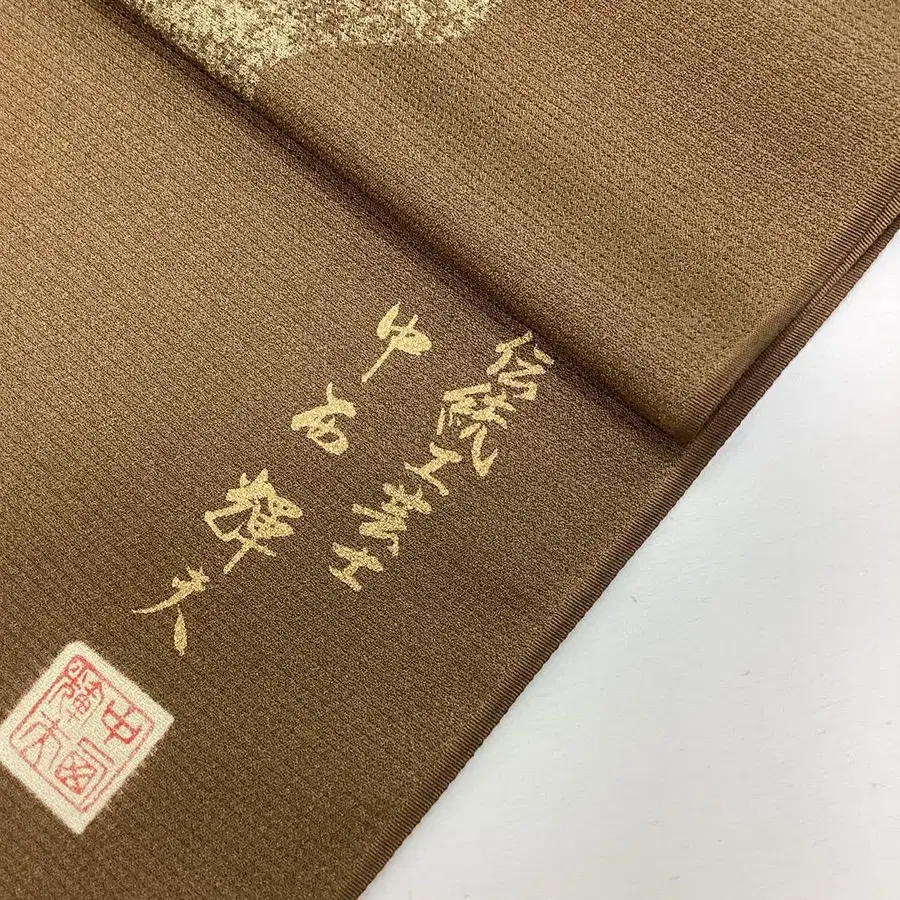 伝統工芸士
中西輝夫
中西
輝夫